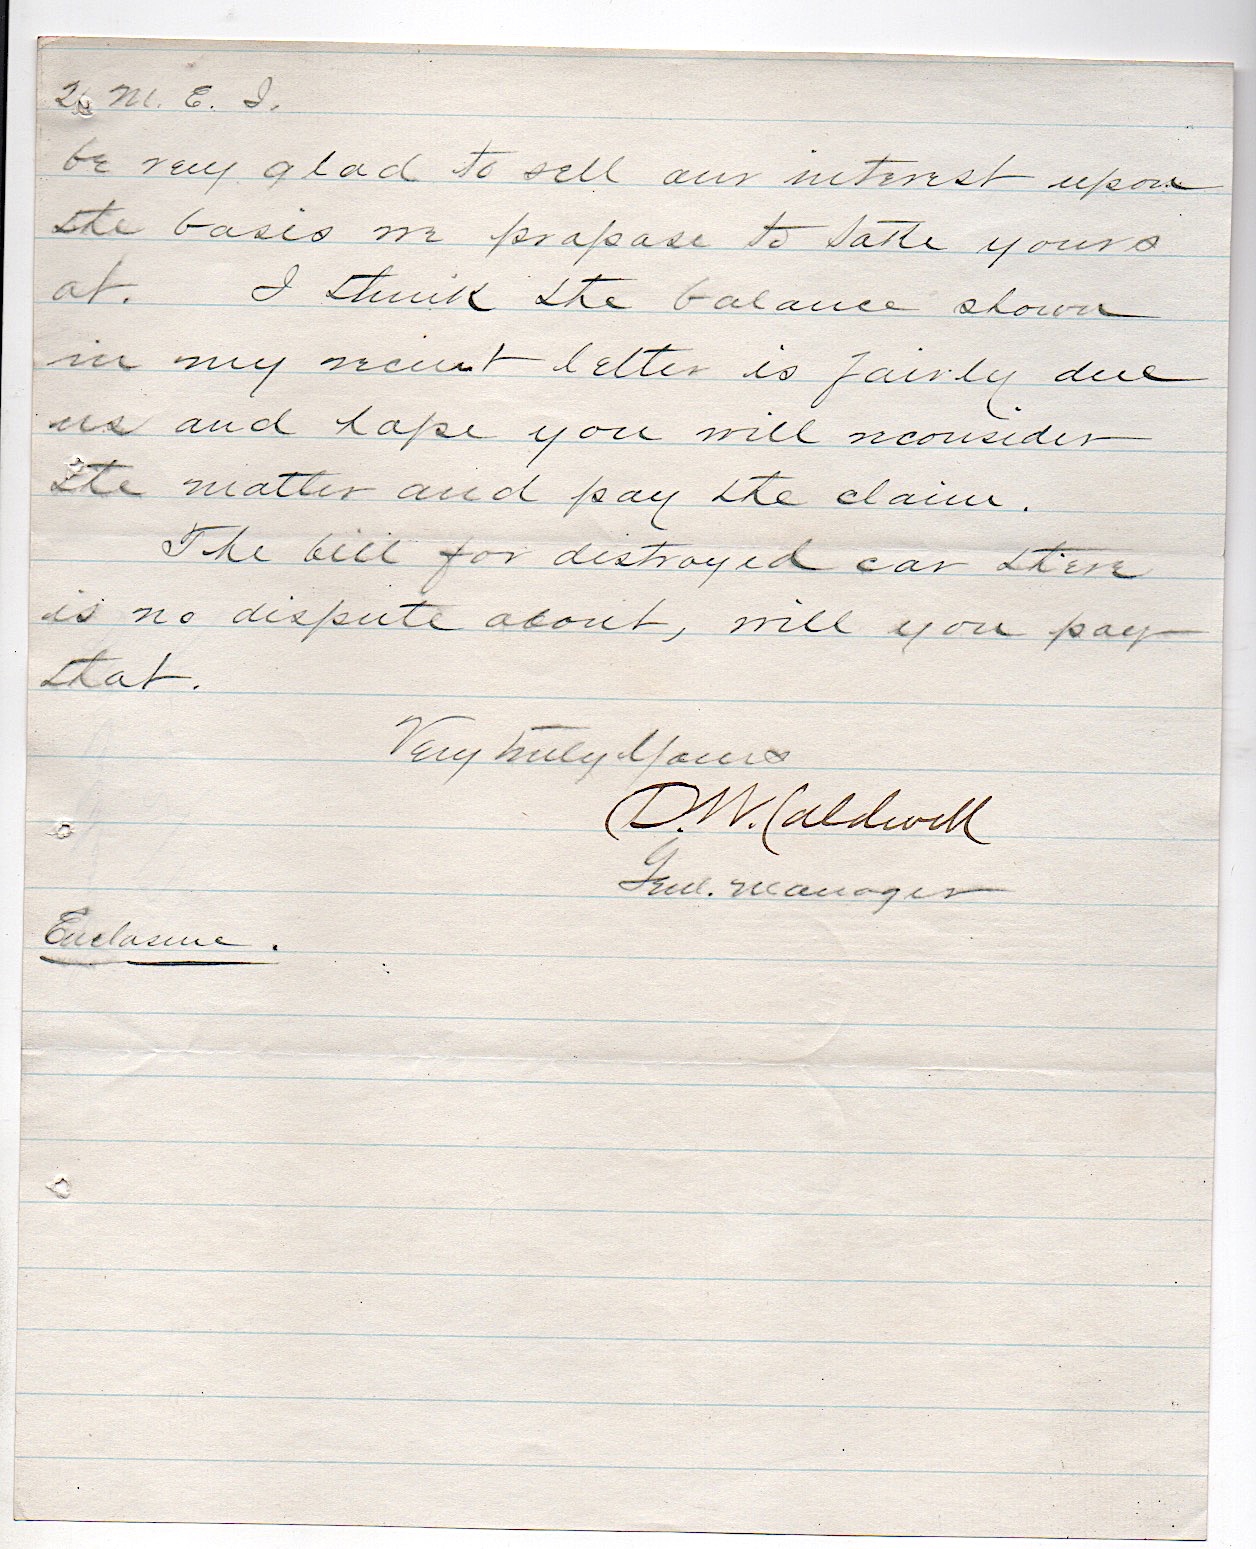 2 M. E. I.
be very glad to sell our interest upon
the basis we propose to take yours
at. I think the balance shown
in my recent letter is fairly due
us and hope you will reconsider
the matter and pay the claim.
The bill for destroyed car there
is no dispute about, will you pay
that.
Very truly Yours
D. W. Caldwell
Genl. Manager
Enclosure.